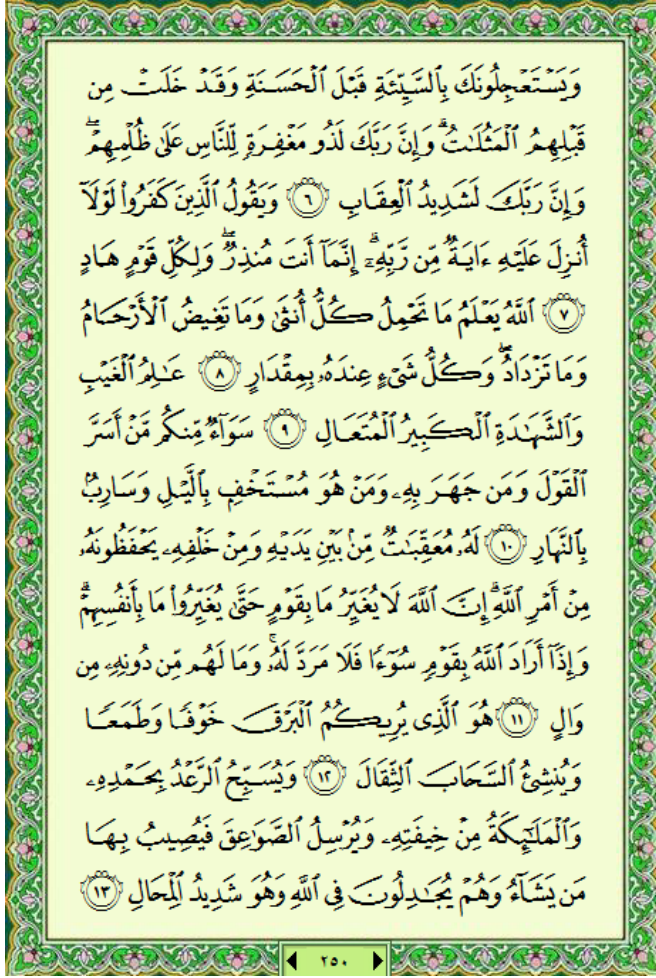 وَيَسْتَعْجِلُونَكَ بِٱلسَّيِّئَةِ قَبْلَ ٱلْحَسَنَةِ وَقَدْ خَلَتْ مِن
قَبْلِهِمُ ٱلْمَثُلَٰتُ ۗ وَإِنَّ رَبَّكَ لَذُو مَغْفِرَةٍ لِّلنَّاسِ عَلَىٰ ظُلْمِهِمْ ۖ
وَإِنَّ رَبَّكَ لَشَدِيدُ ٱلْعِقَابِ ٦ وَيَقُولُ ٱلَّذِينَ كَفَرُوا۟ لَوْلَآ
أُنزِلَ عَلَيْهِ ءَايَةٌ مِّن رَّبِّهِۦٓ ۗ إِنَّمَآ أَنتَ مُنذِرٌ ۖ وَلِكُلِّ قَوْمٍ هَادٍ
٧ ٱللَّهُ يَعْلَمُ مَا تَحْمِلُ كُلُّ أُنثَىٰ وَمَا تَغِيضُ ٱلْأَرْحَامُ
وَمَا تَزْدَادُ ۖ وَكُلُّ شَىْءٍ عِندَهُۥ بِمِقْدَارٍ ٨ عَٰلِمُ ٱلْغَيْبِ
وَٱلشَّهَٰدَةِ ٱلْكَبِيرُ ٱلْمُتَعَالِ ٩ سَوَآءٌ مِّنكُم مَّنْ أَسَرَّ
ٱلْقَوْلَ وَمَن جَهَرَ بِهِۦ وَمَنْ هُوَ مُسْتَخْفٍۭ بِٱلَّيْلِ وَسَارِبٌۢ
بِٱلنَّهَارِ ١٠ لَهُۥ مُعَقِّبَٰتٌ مِّنۢ بَيْنِ يَدَيْهِ وَمِنْ خَلْفِهِۦ يَحْفَظُونَهُۥ
مِنْ أَمْرِ ٱللَّهِ ۗ إِنَّ ٱللَّهَ لَا يُغَيِّرُ مَا بِقَوْمٍ حَتَّىٰ يُغَيِّرُوا۟ مَا بِأَنفُسِهِمْ ۗ
وَإِذَآ أَرَادَ ٱللَّهُ بِقَوْمٍ سُوٓءًا فَلَا مَرَدَّ لَهُۥ ۚ وَمَا لَهُم مِّن دُونِهِۦ مِن
وَالٍ ١١ هُوَ ٱلَّذِى يُرِيكُمُ ٱلْبَرْقَ خَوْفًا وَطَمَعًا
وَيُنشِئُ ٱلسَّحَابَ ٱلثِّقَالَ ١٢ وَيُسَبِّحُ ٱلرَّعْدُ بِحَمْدِهِۦ
وَٱلْمَلَٰٓئِكَةُ مِنْ خِيفَتِهِۦ وَيُرْسِلُ ٱلصَّوَٰعِقَ فَيُصِيبُ بِهَا
مَن يَشَآءُ وَهُمْ يُجَٰدِلُونَ فِى ٱللَّهِ وَهُوَ شَدِيدُ ٱلْمِحَالِ ١٣
٢٥٠